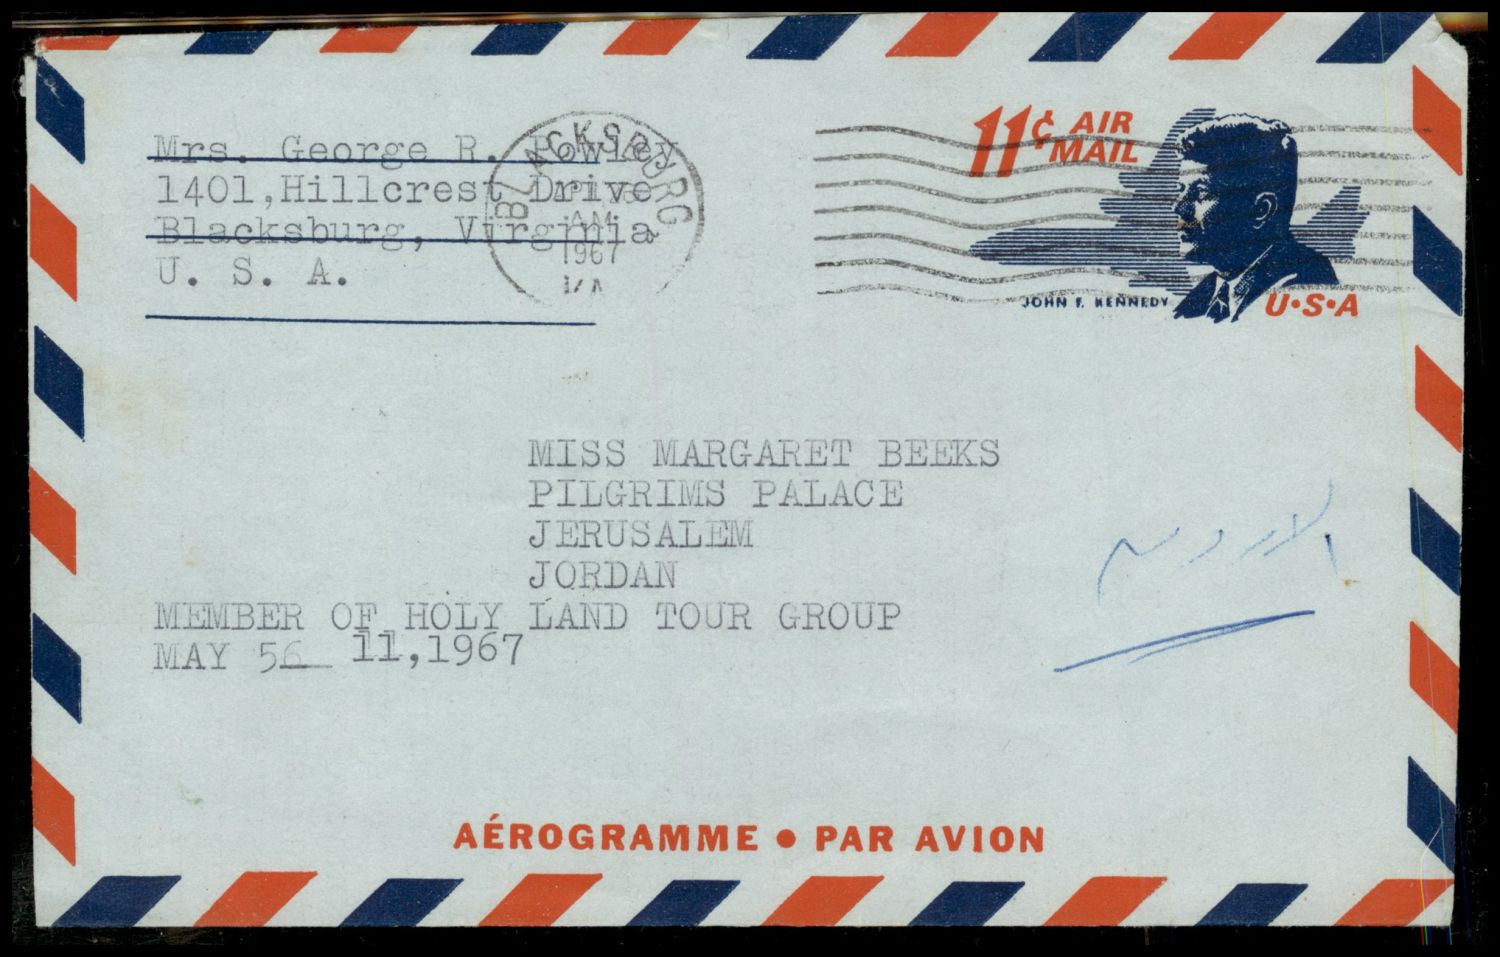 Mrs. George R. Powley
1401,Hillcrest Drive
Blacksburg, Virginia
U. S. A.
BLACKSBURG,
AM
1967
VA
11¢ AIR
MAIL
JOHN F. KENNEDY
U•S•A
MISS MARGARET BEEKS
PILGRIMS PALACE
JERUSALEM
JORDAN
MEMBER OF HOLY LAND TOUR GROUP
MAY 56 11,1967
AÉROGRAMME • PAR AVION